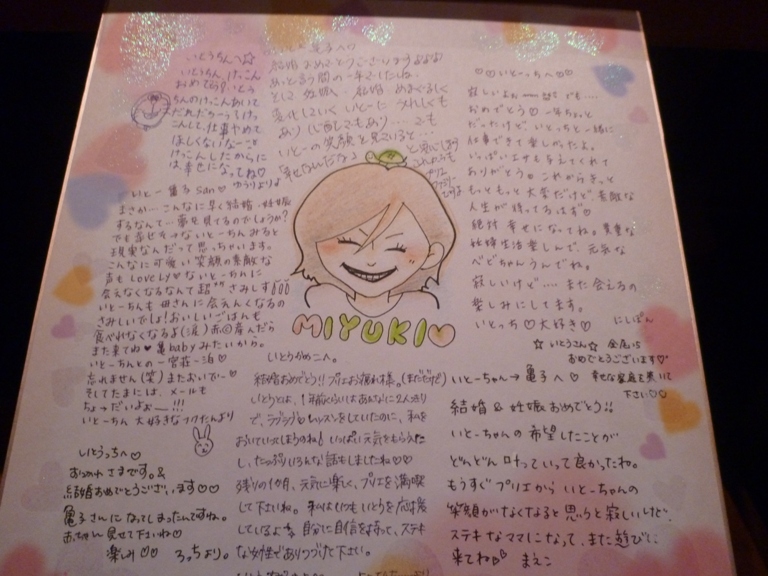 いとうちんへ☆
いとうちん、けっこん
おめでとう！いとう
ちんのけっこんあいて
だれだろーってけっ
こんして、仕事やめて
ほしくないなーこと
けっこんしたからに
は幸せになっ
てね♡
ゆうりより
亀子への
結婚おめでとうございますすす
あっと言う間の一年でしたね。
そして妊娠、結婚 めまぐるしく
変化していくいとーに うれしくも
あり心配でもあり…でも
いとーの笑顔を見ていると…
「幸せなんだな」
と安心します
これからも
プリエ
ファミリー
♡♡いとーっちへ♡♡
寂しいよぉーーー でも…
おめでとう♡一年ちょっと
だったけど いとっちと一緒に
仕事できて楽しかったよ。
いっぱいエサも与えてくれて
ありがとう。これからきっと
もっともっと大変だけど、素敵な
人生が待ってるはず♡
絶対 幸せになってね。貴重な
妊婦生活楽しんで、元気な
べビちゃんうんでね。
寂しいけど… また会えるの
楽しみにしてます。
いとっち♡大好き♡ にしぽん
いとー亀子san♡
まさか…こんなに早く結婚・妊娠
するなんて…夢を見てるのでしょうか？
でも幸せそ→ないとーちんみると
現実なんだって思っちゃいます。
こんなに可愛い笑顔の素敵な
声もLOVELY♥ないとーちんに
会えなくなるなんて超さみしす
いとーちんも母さんに会えんくなるの
さみしいでしょ！おいしいごはんも
食べれなくなるよ(涙)赤◎産んだら
また来てね♥亀babyみたいから。
いとーちんとの一宮荘一泊♡
忘れません(笑)またおいでー♡
そしてたまには、メールも
ちょーだいよぉー!!!
いとーちん 大好きなつけたんより
MIYUKI♡
いとうかめこへ。
結婚おめでとう!!プリエお濡れ様。(まだだけど)
いとうとは、1年前くらいはあんなに2人きり
で、ラブラブ♡レッスンをしていたのに、私を
おいていってしまうのね！いっぱい元気をもらえた
し、たっぷりいろんな話もしましたね♡♡
残りの1か月、元気に楽しく、プリエを満喫
して下さいね。私はいつもいとうを応援
しているよ。自分に自信を持って、ステキ
な女性でありつづけて下さい。
☆いとうさん☆
おめでとうございます♡
幸せな家庭を築いて
下さい♡♡
いとーちゃん→亀子へ♡
結婚&妊娠おめでとう!!
いとーちゃんの希望したことが
どんどん叶っていって良かったね。
もうすぐプリエからいとーちゃんの
笑顔がなくなると思うと寂しいけど、
ステキなママになって、また遊びに
来てね♡ まえこ
いとうっちへ♡
おつかれさまです。&
結婚おめでとうございます♡♡
亀子さんになってしまったんですね。
赤ちゃん見せて下さいね♡
楽しみ♡♡ ろっちより。